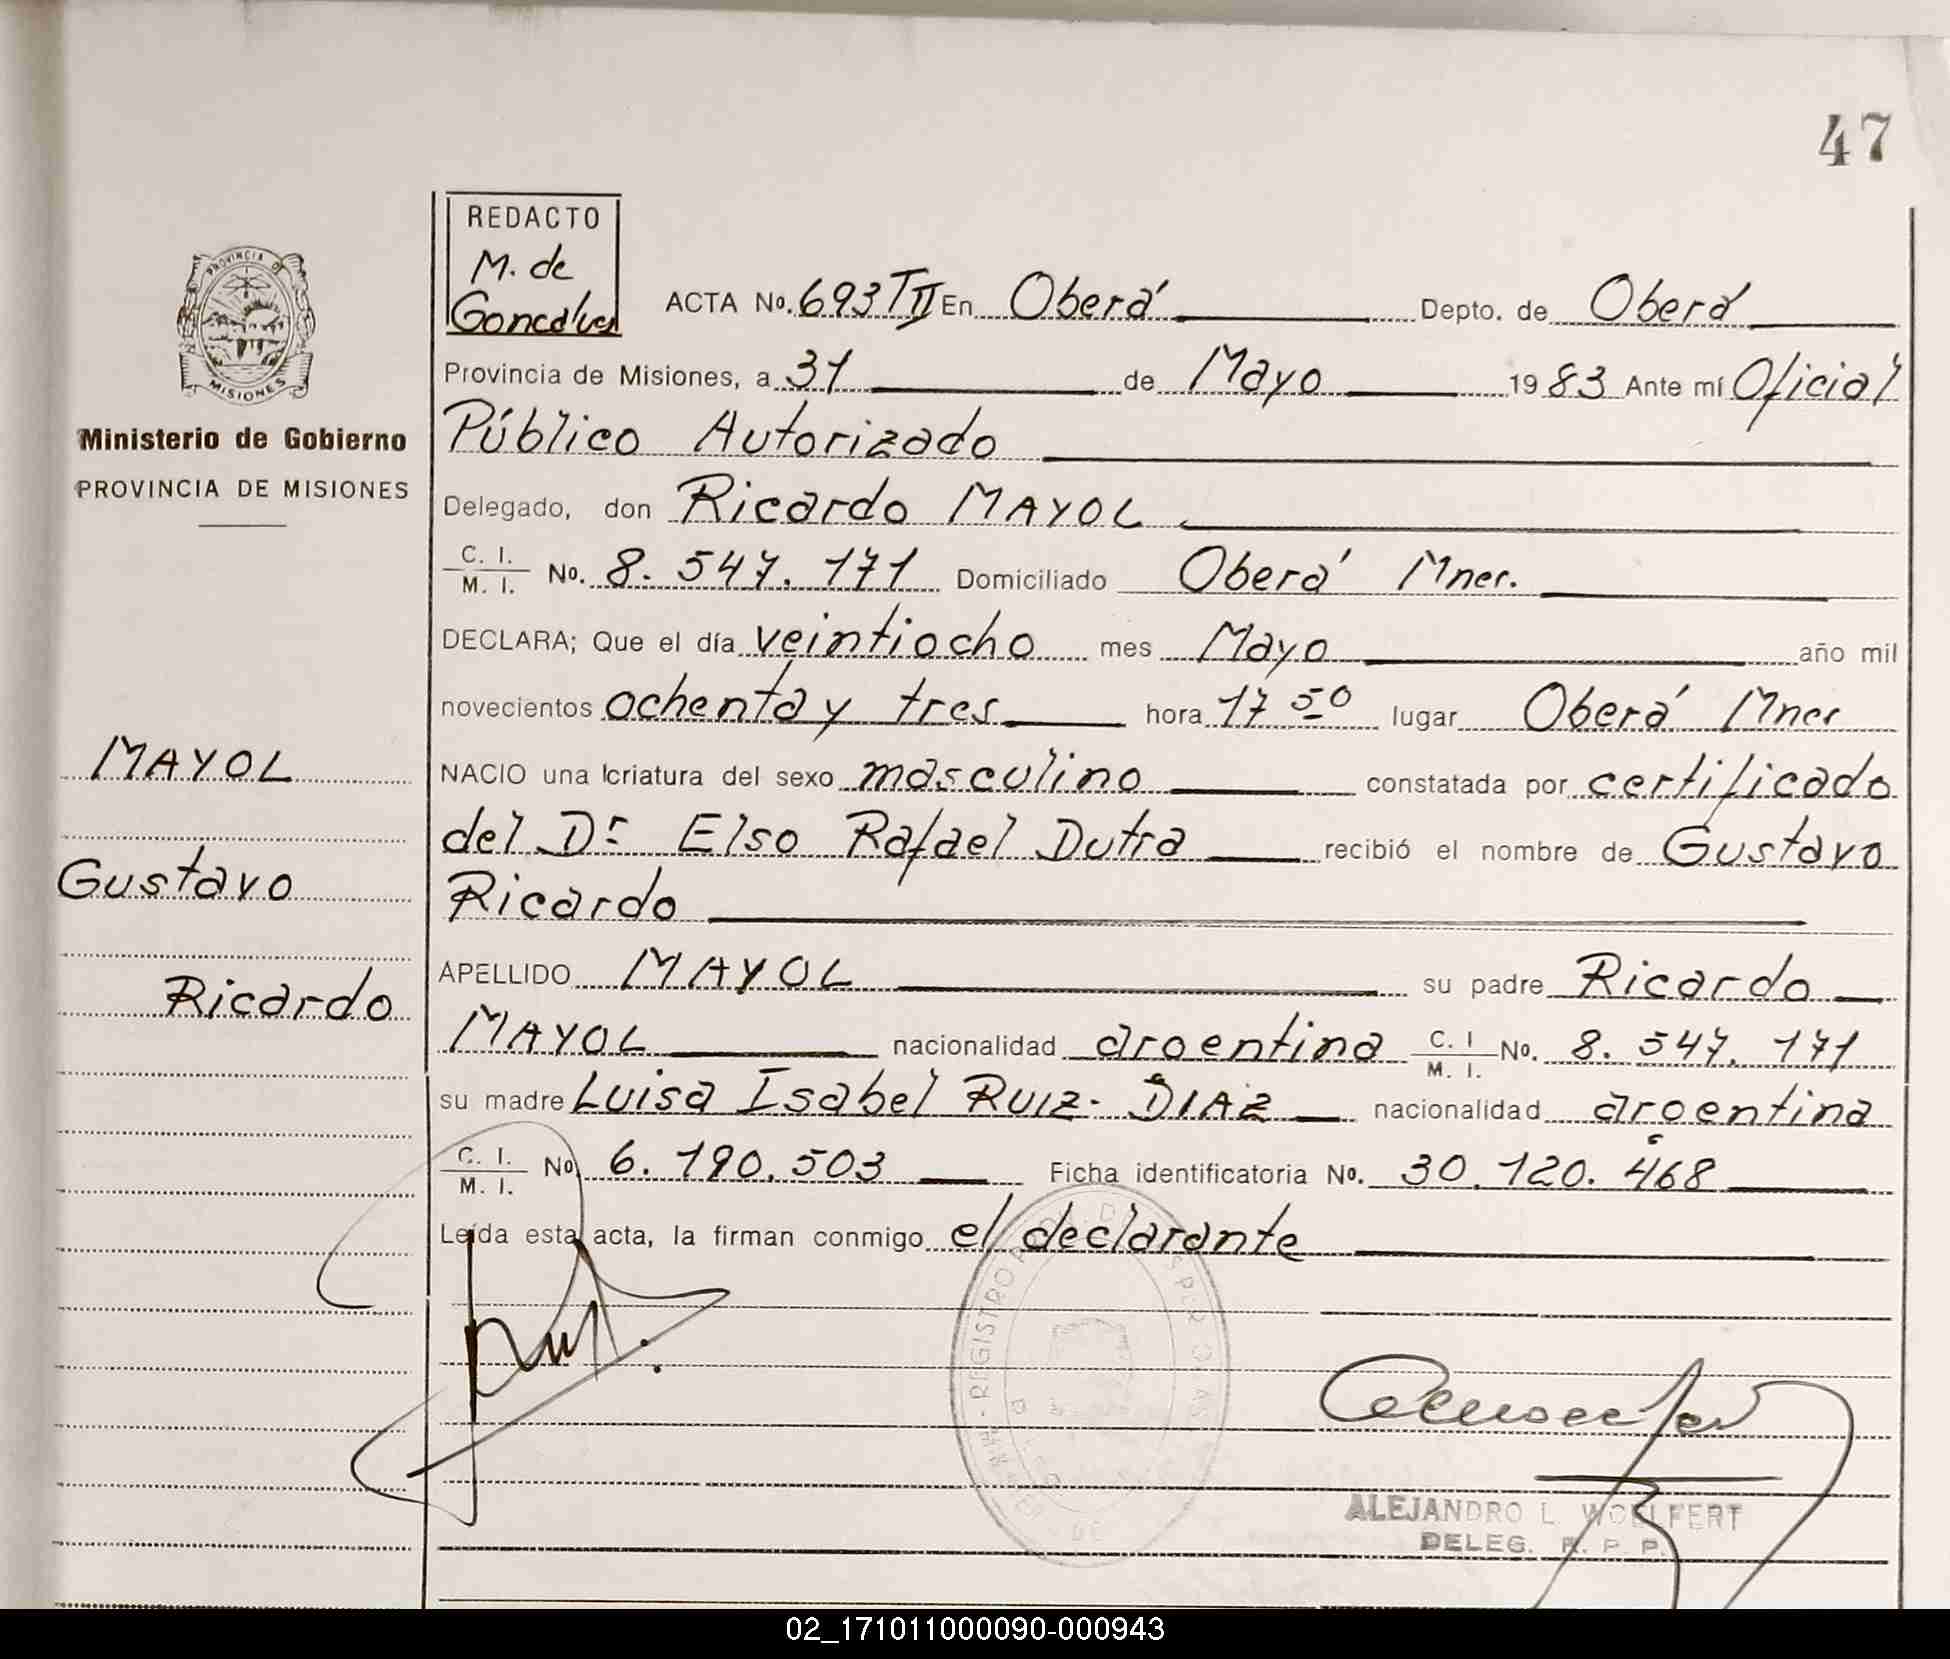 47
REDACTO
M. de
Goncalves
ACTA No. 693 TII En Oberá Depto. de Oberá
Provincia de Misiones, a 31 de Mayo 1983 Ante mí Oficial
Público Autorizado
Delegado, don Ricardo MAYOL
C. I. / M. I. No. 8.547.171 Domiciliado Oberá Mnes.
DECLARA; Que el día veintiocho mes Mayo año mil
novecientos ochenta y tres hora 17 50 lugar Oberá Mnes
NACIO una criatura del sexo masculino constatada por certificado
del Dr Elso Rafael Dutra recibió el nombre de Gustavo
Ricardo
APELLIDO MAYOL su padre Ricardo
MAYOL nacionalidad argentina C. I / M. I. No. 8.547.171
su madre Luisa Isabel RUIZ-DIAZ nacionalidad argentina
C. I. / M. I. No 6.190.503 Ficha identificatoria No. 30.120.468
Leída esta acta, la firman conmigo el declarante
ALEJANDRO L. WOELFERT
DELEG. R. P. P.
PROVINCIA DE
MISIONES
Ministerio de Gobierno
PROVINCIA DE MISIONES
MAYOL
Gustavo
Ricardo
02_171011000090-000943